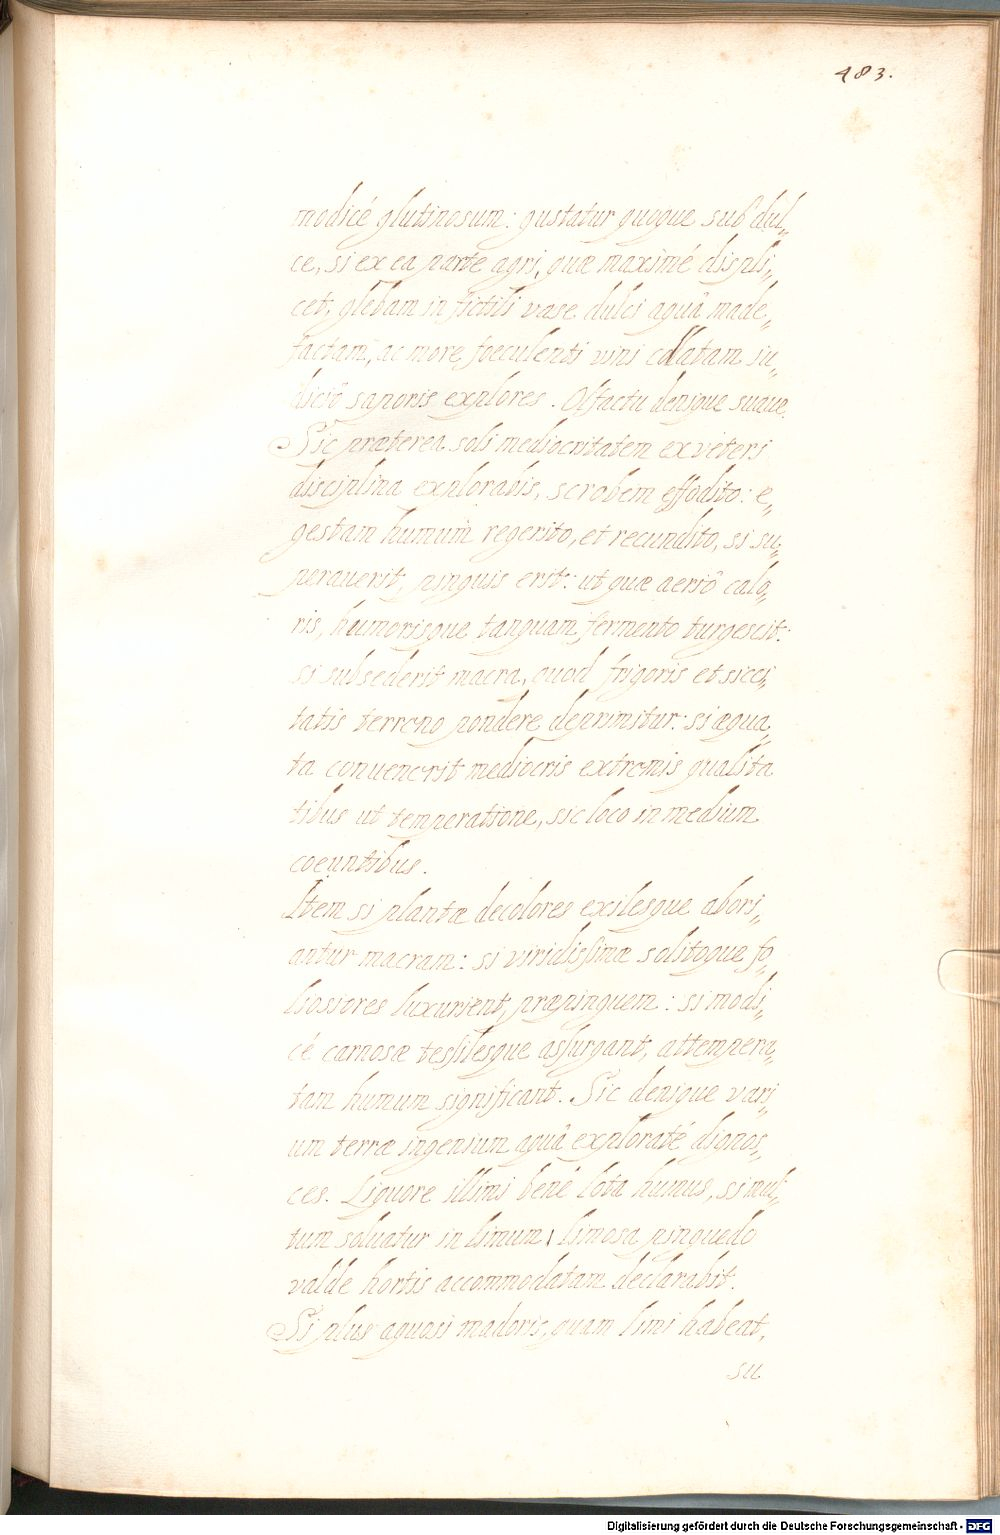 483.
modicé glutinosum: gustatur quoque sub dul„
ce, si ex ea parte agri, quæ maximé displi„
cet, glebam in fictili vase dulci aquâ made„
factam, ac more foeculenti vini collatam iu„
diciô saporis explores. Olfactu denique suaue.
Sic præterea soli mediocritatem ex veteri
disciplina explorabis, scrobem effodito: e„
gestam humum regerito, et recundito, si su„
perauerit, pinguis erit: ut quæ aeriô calo„
ris, humorisque tanquam fermento turgescit:
si subsederit macra, quod frigoris et sicci„
tatis terreno pondere deprimitur: si æqua„
ta conuenerit mediocris extremis qualita
tibus ut temperatione, sic loco in medium
coeuntibus.
Item si plantæ decolores exilesque abori„
antur macram: si viridissimæ solitoque fo„
liosiores luxurient, præpinguem: si modi„
cé carnosæ tessilesque assurgant, attempera„
tam humum significant. Sic denique vari„
um terræ ingenium aquâ exploraté dignos„
ces. Liquore illimi bené lota humus, si mul„
tum soluatur in limum, limosa pinguedo
valde hortis accommodatam declarabit.
Si plus aquosi madoris, quam limi habeat,
su
Digitalisierung gefördert durch die Deutsche Forschungsgemeinschaft - DFG